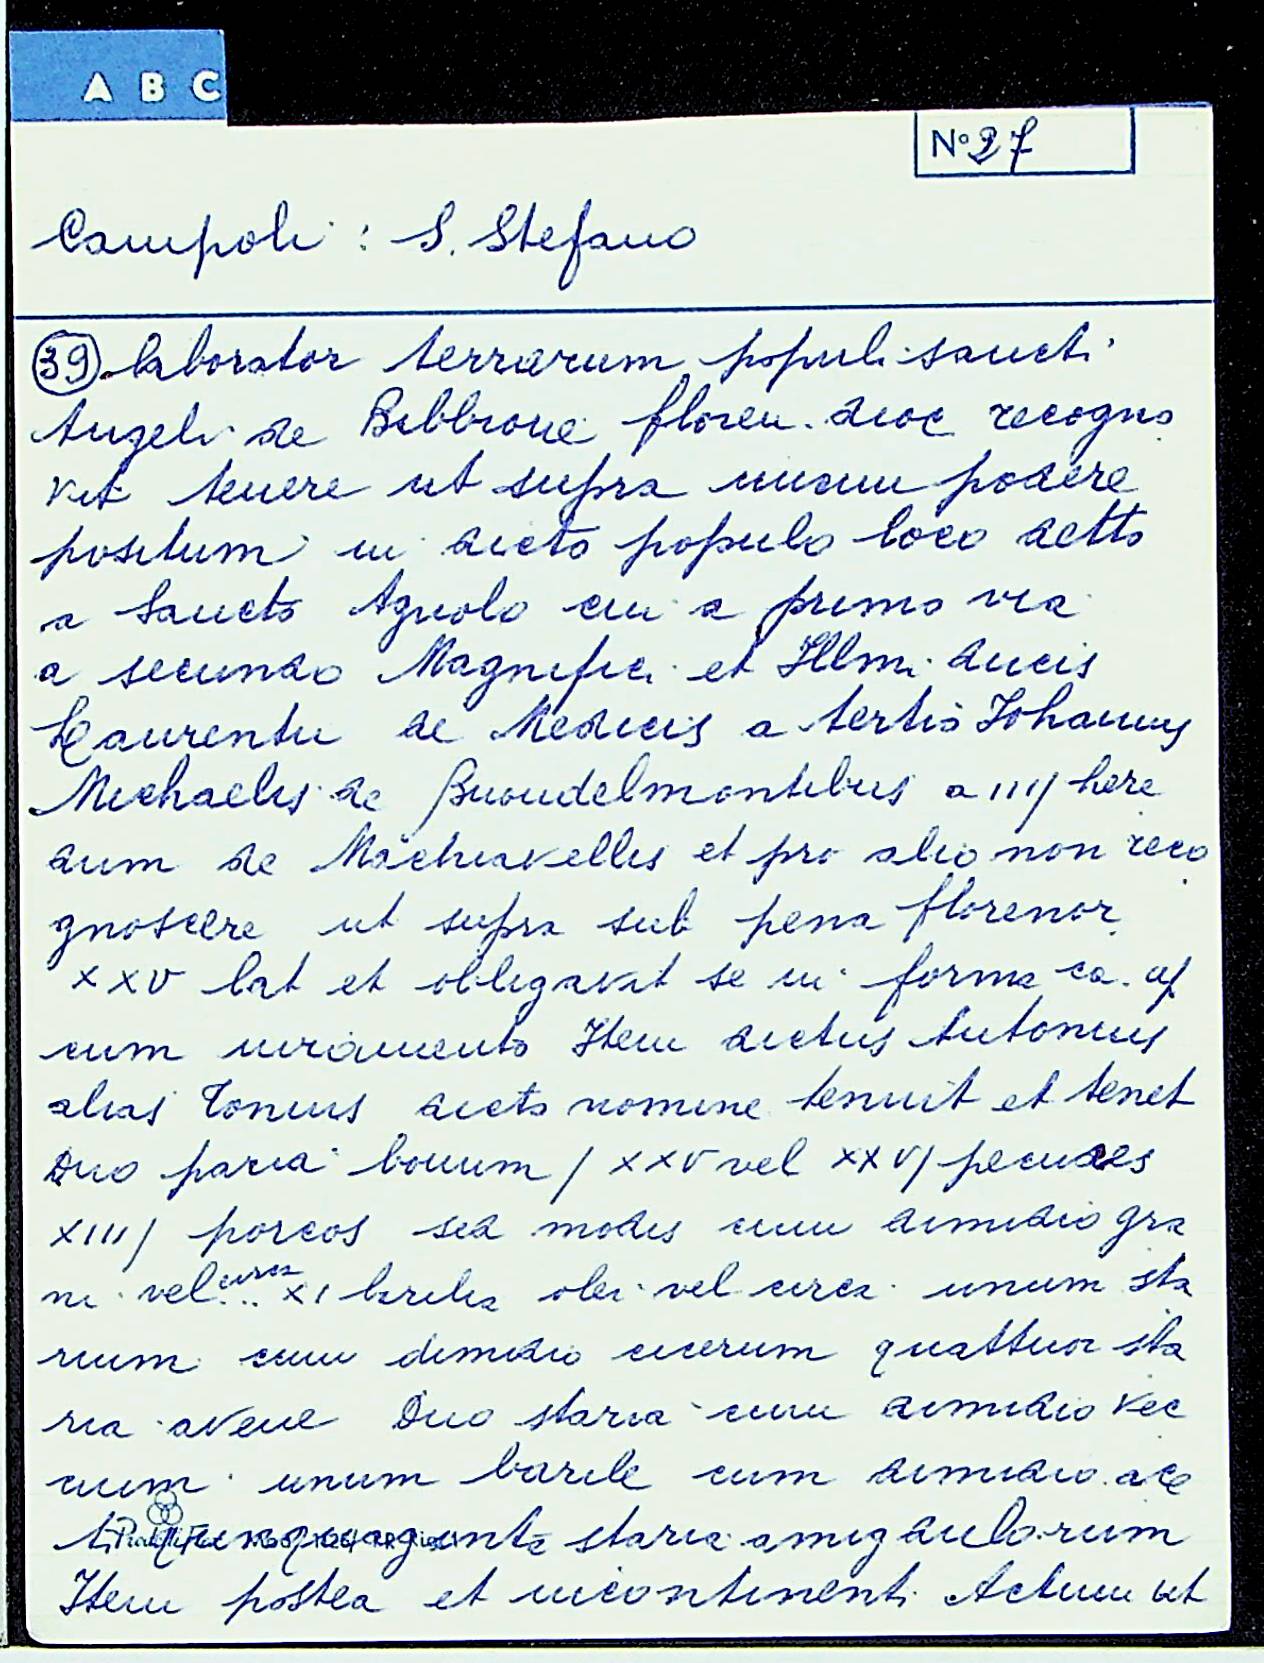 A B C
N° 27
Campoli : S. Stefano
39 laborator terrarum populi sancti
Angeli de Bibbione floren. dioc recogno
vit tenere ut supra unum podere
positum in dicto populo loco detto
a Sancto Agnolo cui a primo via
a secundo Magnifici et Illmi ducis
Laurentii de Medicis a tertio Johannis
Michaelis de Buondelmontibus a IIII/ here
dum de Machiavellis et pro alio non reco
gnoscere ut supra sub pena florenor.
XXV lat et obligavit se in forma ca.
cum iuramento Item dictus Antonius
alias Tonius dicto nomine tenuit et tenet
Duo paria bouum / XXV vel XXVI pecudes
XIII/ porcos sed modis cum dimidio gra
ni vel circa ... XI barilia olei vel circa unum sta
rium cum dimidio cicerum quattuor sta
ria avene Duo staria cum dimidio vec
cium unum barile cum dimidio ace
ti quinquaginta staria amigdulorum
Item postea et incontinenti Actum ut